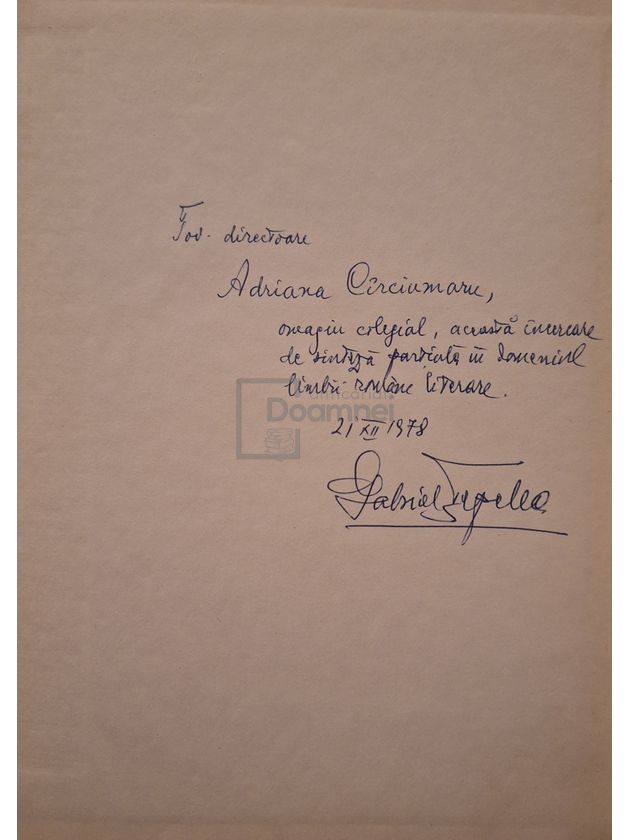 Tov. directoare
Adriana Cîrciumaru,
omagiu colegial, această încercare
de sinteză parțială în domeniul
limbii române literare.
anticariat
Doamnei
21 XII 1978
Gabriel Țepelea